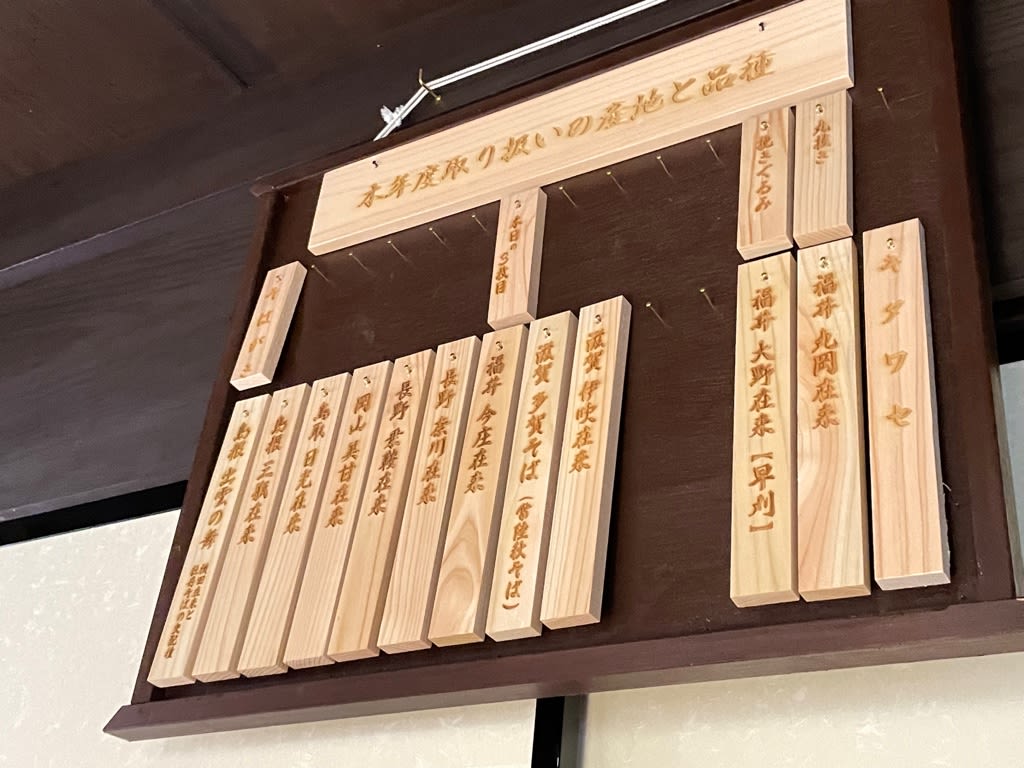 本年度取り扱いの産地と品種
丸抜き
挽きぐるみ
本日の3枚目
キタワセ
福井 丸岡在来
福井 大野在来【早刈】
滋賀 伊吹在来
滋賀 多賀そば(常陸秋そば)
福井 今庄在来
長野 奈川在来
長野 乗鞍在来
岡山 美甘在来
鳥取 日光在来
島根 三瓶在来
島根 出雲の舞